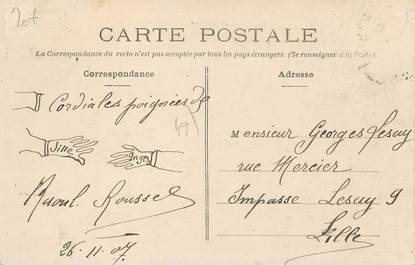 20t
CARTE POSTALE
La Correspondance du recto n'est pas acceptée par tous les pays étrangers. (Se renseigner à la Poste)
Correspondance
Cordiales poignées de
49
Raoul Roussel
26-11-07
Adresse
Monsieur Georges Lesay
rue Mercier
Impasse Lesay 9
Lille